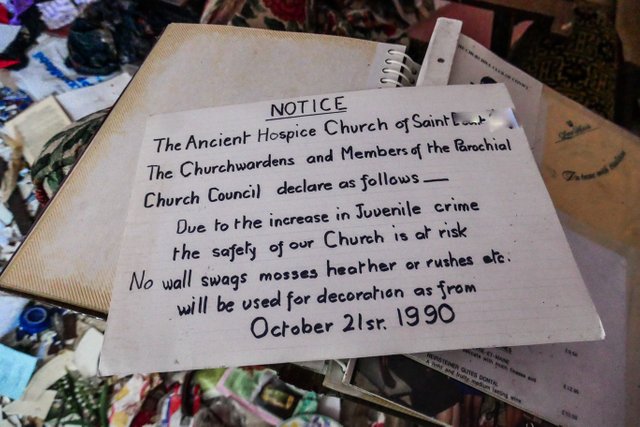 NOTICE
The Ancient Hospice Church of Saint
The Churchwardens and Members of the Parochial
Church Council declare as follows —
Due to the increase in Juvenile crime
the safety of our Church is at risk
No wall swags mosses heather or rushes etc.
will be used for decoration as from
October 21st. 1990